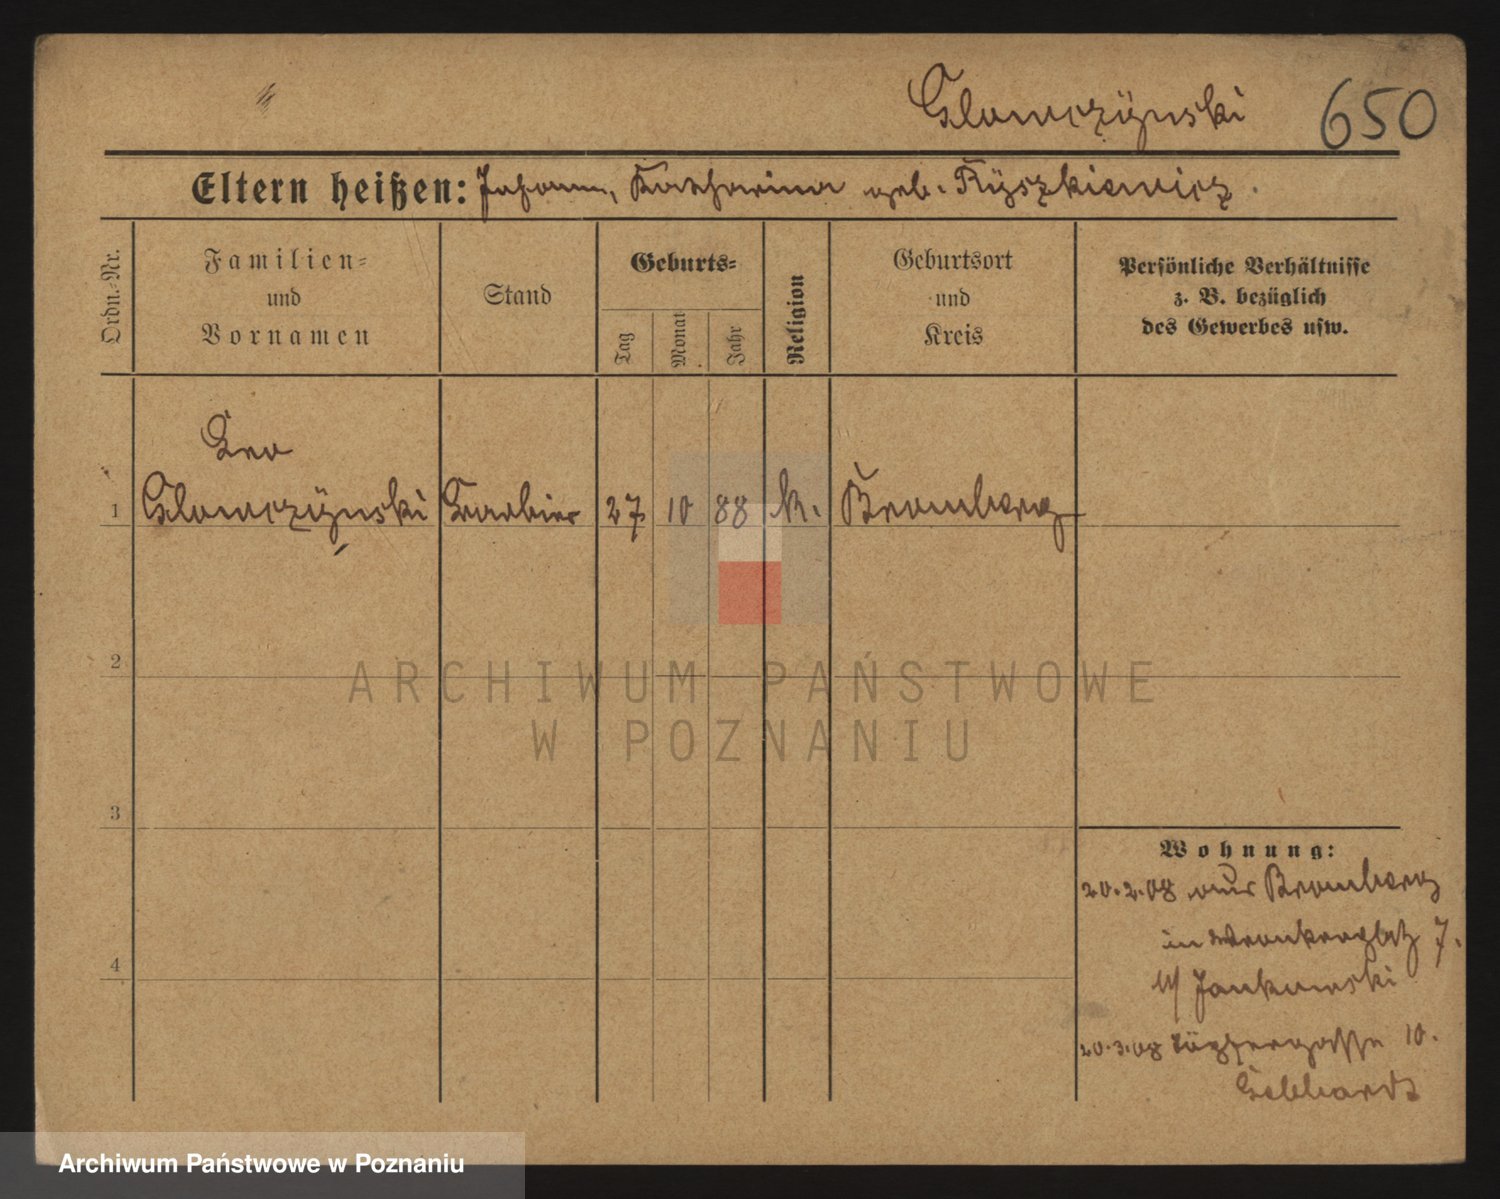 Glowczÿnski 650
Eltern heißen: Johann, Katharina geb. Ryszkiewicz.
Ordn.-Nr.
Familien-
und
Vornamen
Stand
Geburts-
Tag
Monat
Jahr
Religion
Geburtsort
und
Kreis
Persönliche Verhältnisse
z. B. bezüglich
des Gewerbes usw.
Leo
1 Glowczÿnski Barbier 27 10 88 k. Bromberg
2
ARCHIWUM PAŃSTWOWE
W POZNANIU
3
Wohnung:
20.2.08 aus Bromberg
in Wronkerplatz 7.
b/ Jankowski
4
20.3.08 Töpfergasse 10.
Gebhardt
Archiwum Państwowe w Poznaniu